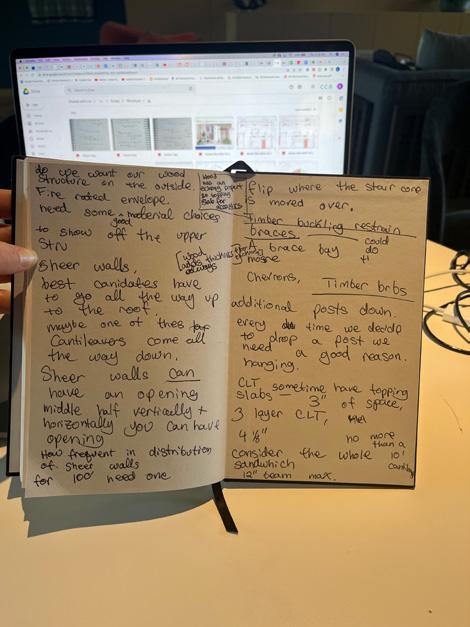 Drive
do we want our wood
structure on the outside.
Fire rated envelope.
need some good material choices
to show off the upper
stru
Sheer walls,
best canidates have
to go all the way up
to the roof,
maybe one of thes
Cantileavers come all
the way down.
Sheer walls can
have an opening
middle half vertically +
horizontally you can have
opening
How frequent in distribution
of sheer walls
for 100' need one
wood
has an
slab for
wood
adds thickness
always
flip where the stair core
is moved over.
Timber buckling restrain
braces.
could
do
it
A brace bay
Chevrons,
Timber brbs
additional posts down.
every time we decide
to drop a post we
need a good reason.
hanging.
CLT sometime have topping
slabs — 3" of space,
3 layer CLT,
4 1/8"
no more
than a
10'
consider the whole
sandwhich
12" beam max.